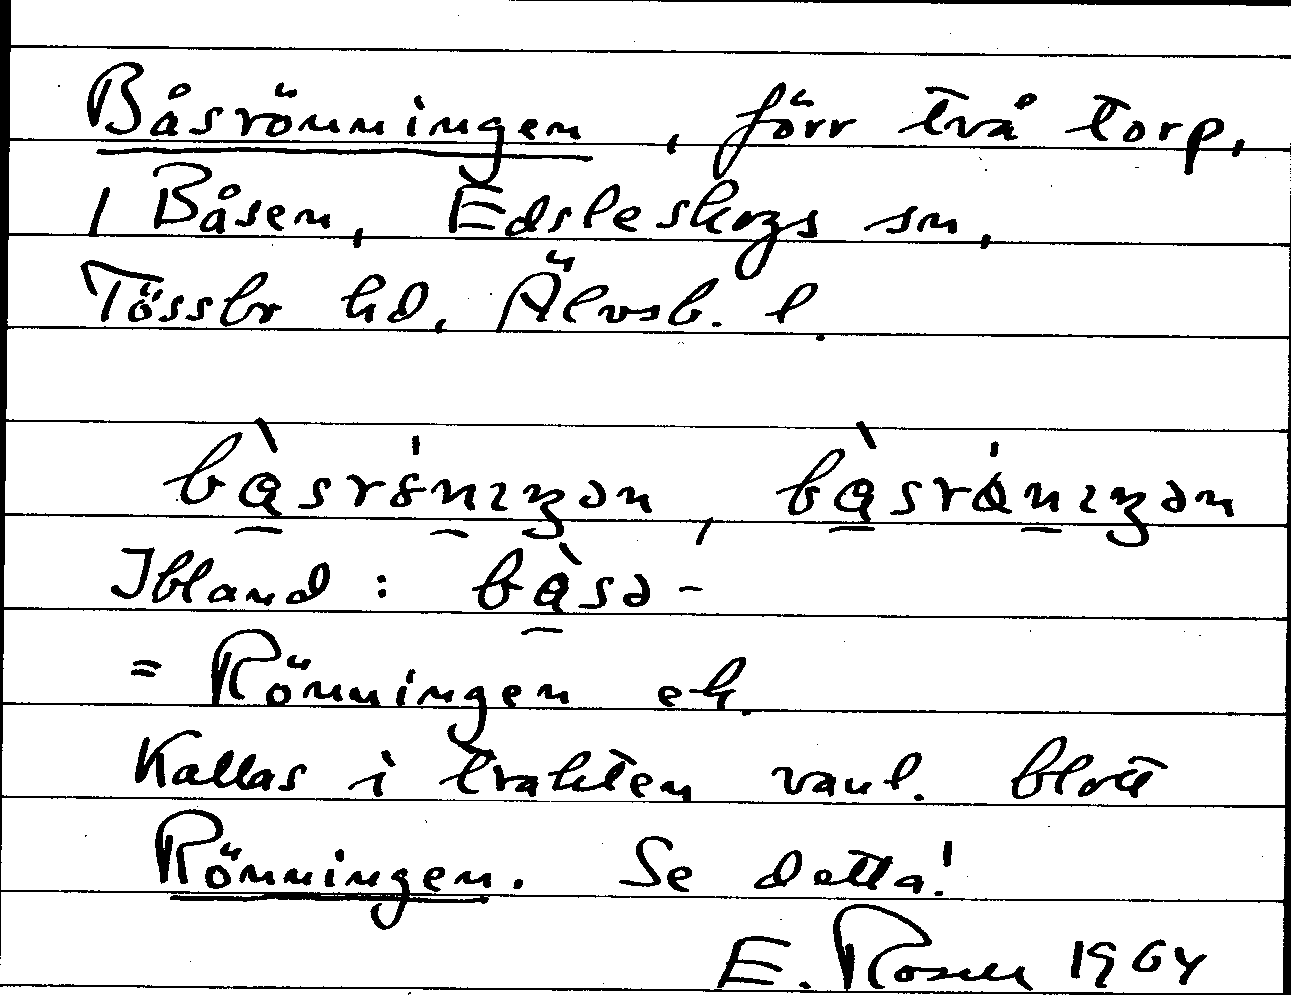 Båsrönningen, förr två torp,
i Båsen, Edsleskogs sn,
Tössbr hd, Älvsb. l.
bàsrö́niŋən, bàsrá́niŋən
Ibland: bàsə-
= Rönningen ek.
Kallas i trakten vanl. blott
Rönningen. Se detta!
E. Rosell 1964